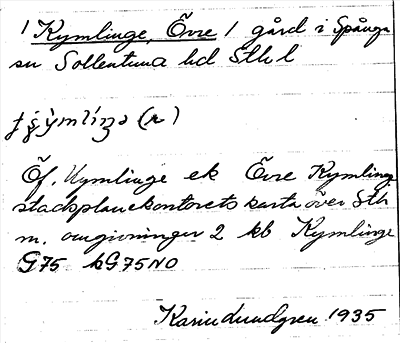 1 Kymlinge, Övre / gård i Spånga
sn Sollentuna hd Sthl l
Öf. Kymlinge ek Övre Kymling
stadsplanekontorets karta över Sth
m. omgivningar 2 kb Kymlinge
G75 kG75NO
Karin Lundgren 1935